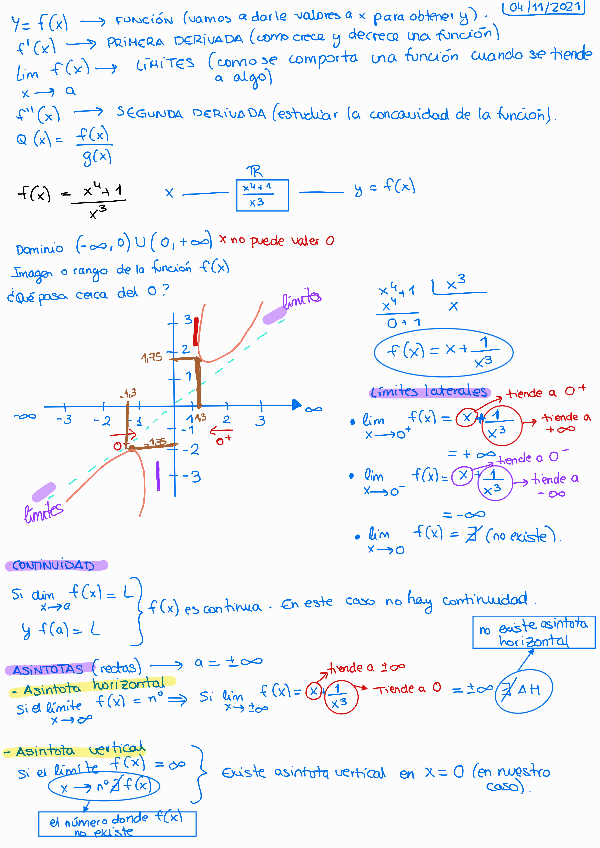 04/11/2021
Y = f(x) → FUNCIÓN (vamos a darle valores a x para obtener y).
f'(x) → PRIMERA DERIVADA (como crece y decrece una función)
lim f(x) → LÍMITES (como se comporta una función cuando se tiende
x → a a algo)
f''(x) → SEGUNDA DERIVADA (estudiar la concavidad de la función).
Q(x) = f(x)/g(x)
ℝ
f(x) = x⁴+1/x³ x x⁴+1/x³ y = f(x)
Dominio (-∞,0) U (0,+∞) x no puede valer 0
Imagen o rango de la función f(x)
¿Qué pasa cerca del 0?
límites
3
2
1,75
1
-1,3
-∞ -3 -2 -1 1 1,3 2 3 ∞
0⁻ 0⁺
-1
-1,75 -2
-3
límites
x⁴+1 x³
x⁴ x
0+1
f(x) = x + 1/x³
Límites laterales
tiende a 0⁺
• lim f(x) = x + 1/x³ → tiende a
x→0⁺ +∞
= +∞
tiende a 0⁻
• lim f(x) = x + 1/x³ → tiende a
x→0⁻ -∞
= -∞
• lim f(x) = ∄ (no existe).
x→0
CONTINUIDAD
Si lim f(x) = L
x→a
y f(a) = L
f(x) es continua. En este caso no hay continuidad.
no existe asíntota
horizontal
ASÍNTOTAS (rectas) → a = ±∞
- Asíntota horizontal
tiende a ±∞
Si el límite f(x) = nº ⇒ Si lim f(x) = x + 1/x³ → Tiende a 0 = ±∞ ∄ AH
x→∞ x→±∞
- Asíntota vertical
Si el límite f(x) = ∞
x → nº ∄ f(x)
Existe asíntota vertical en x = 0 (en nuestro
caso).
el número donde f(x)
no existe